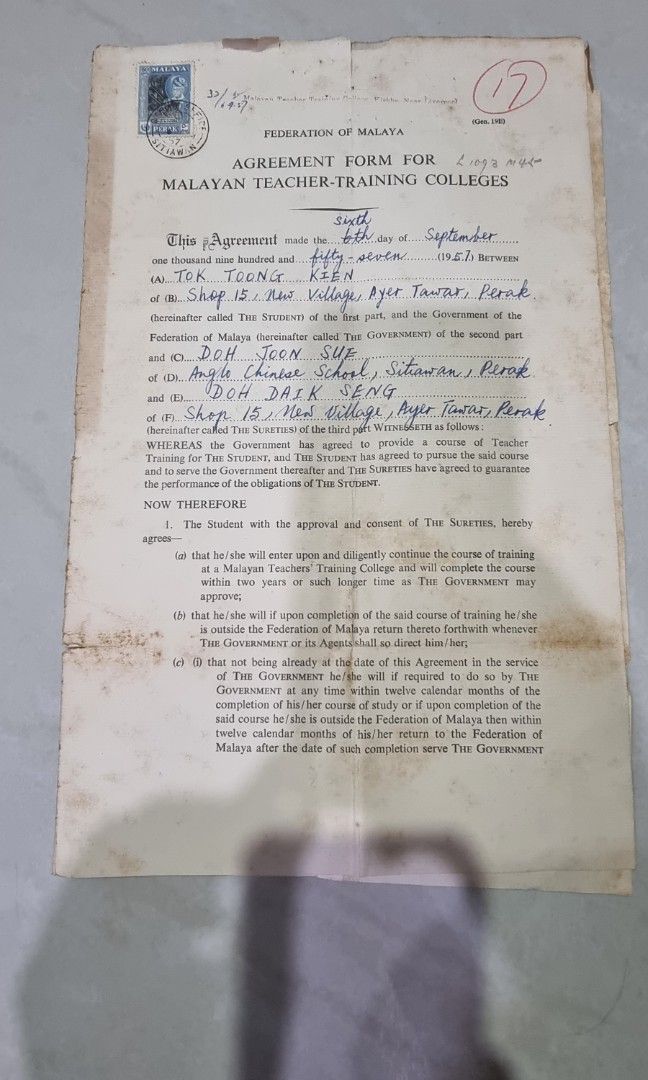 MALAYA
PERAK
Malayan Teacher Training College, Kirkby, Near Liverpool
17
(Gen. 191B)
FEDERATION OF MALAYA
AGREEMENT FORM FOR
MALAYAN TEACHER-TRAINING COLLEGES
sixth
This Agreement made the 6th day of September
one thousand nine hundred and fifty-seven (1957) BETWEEN
(A) TOK TOONG KIEN
of (B) Shop 15, New Village, Ayer Tawar, Perak.
(hereinafter called THE STUDENT) of the first part, and the Government of the
Federation of Malaya (hereinafter called THE GOVERNMENT) of the second part
and (C) DOH JOON SUE
of (D) Anglo Chinese School, Sitiawan, Perak
and (E) DOH DAIK SENG
of (F) Shop 15, New Village, Ayer Tawar, Perak
(hereinafter called THE SURETIES) of the third part WITNESSETH as follows:
WHEREAS the Government has agreed to provide a course of Teacher
Training for THE STUDENT, and THE STUDENT has agreed to pursue the said course
and to serve the Government thereafter and THE SURETIES have agreed to guarantee
the performance of the obligations of THE STUDENT.
NOW THEREFORE
1. The Student with the approval and consent of THE SURETIES, hereby
agrees—
(a) that he/she will enter upon and diligently continue the course of training
at a Malayan Teachers' Training College and will complete the course
within two years or such longer time as THE GOVERNMENT may
approve;
(b) that he/she will if upon completion of the said course of training he/she
is outside the Federation of Malaya return thereto forthwith whenever
THE GOVERNMENT or its Agents shall so direct him/her;
(c) (i) that not being already at the date of this Agreement in the service
of THE GOVERNMENT he/she will if required to do so by THE
GOVERNMENT at any time within twelve calendar months of the
completion of his/her course of study or if upon completion of the
said course he/she is outside the Federation of Malaya then within
twelve calendar months of his/her return to the Federation of
Malaya after the date of such completion serve THE GOVERNMENT